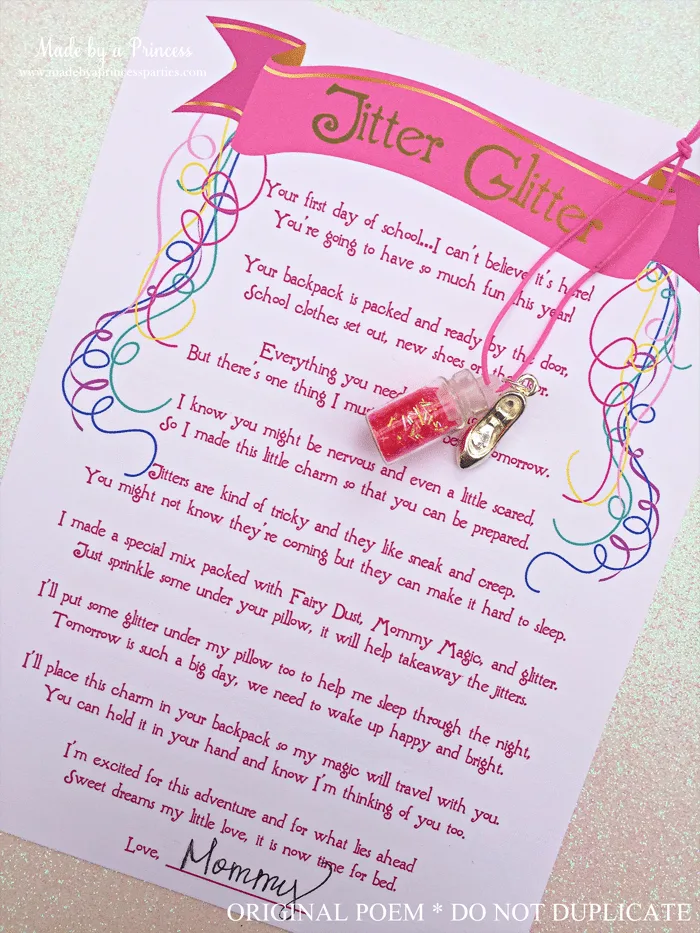 Made by a Princess
www.madebyaprincessparties.com
Jitter Glitter
Your first day of school...I can't believe it's here!
You're going to have so much fun this year!
Your backpack is packed and ready by the door,
School clothes set out, new shoes on the
Everything you need
But there's one thing I tomorrow.
I know you might be nervous and even a little scared,
So I made this little charm so that you can be prepared.
Jitters are kind of tricky and they like sneak and creep.
You might not know they're coming but they can make it hard to sleep.
I made a special mix packed with Fairy Dust, Mommy Magic, and glitter.
Just sprinkle some under your pillow, it will help takeaway the jitters.
I'll put some glitter under my pillow too to help me sleep through the night,
Tomorrow is such a big day, we need to wake up happy and bright.
I'll place this charm in your backpack so my magic will travel with you.
You can hold it in your hand and know I'm thinking of you too.
I'm excited for this adventure and for what lies ahead
Sweet dreams my little love, it is now time for bed.
Love, Mommy
ORIGINAL POEM * DO NOT DUPLICATE